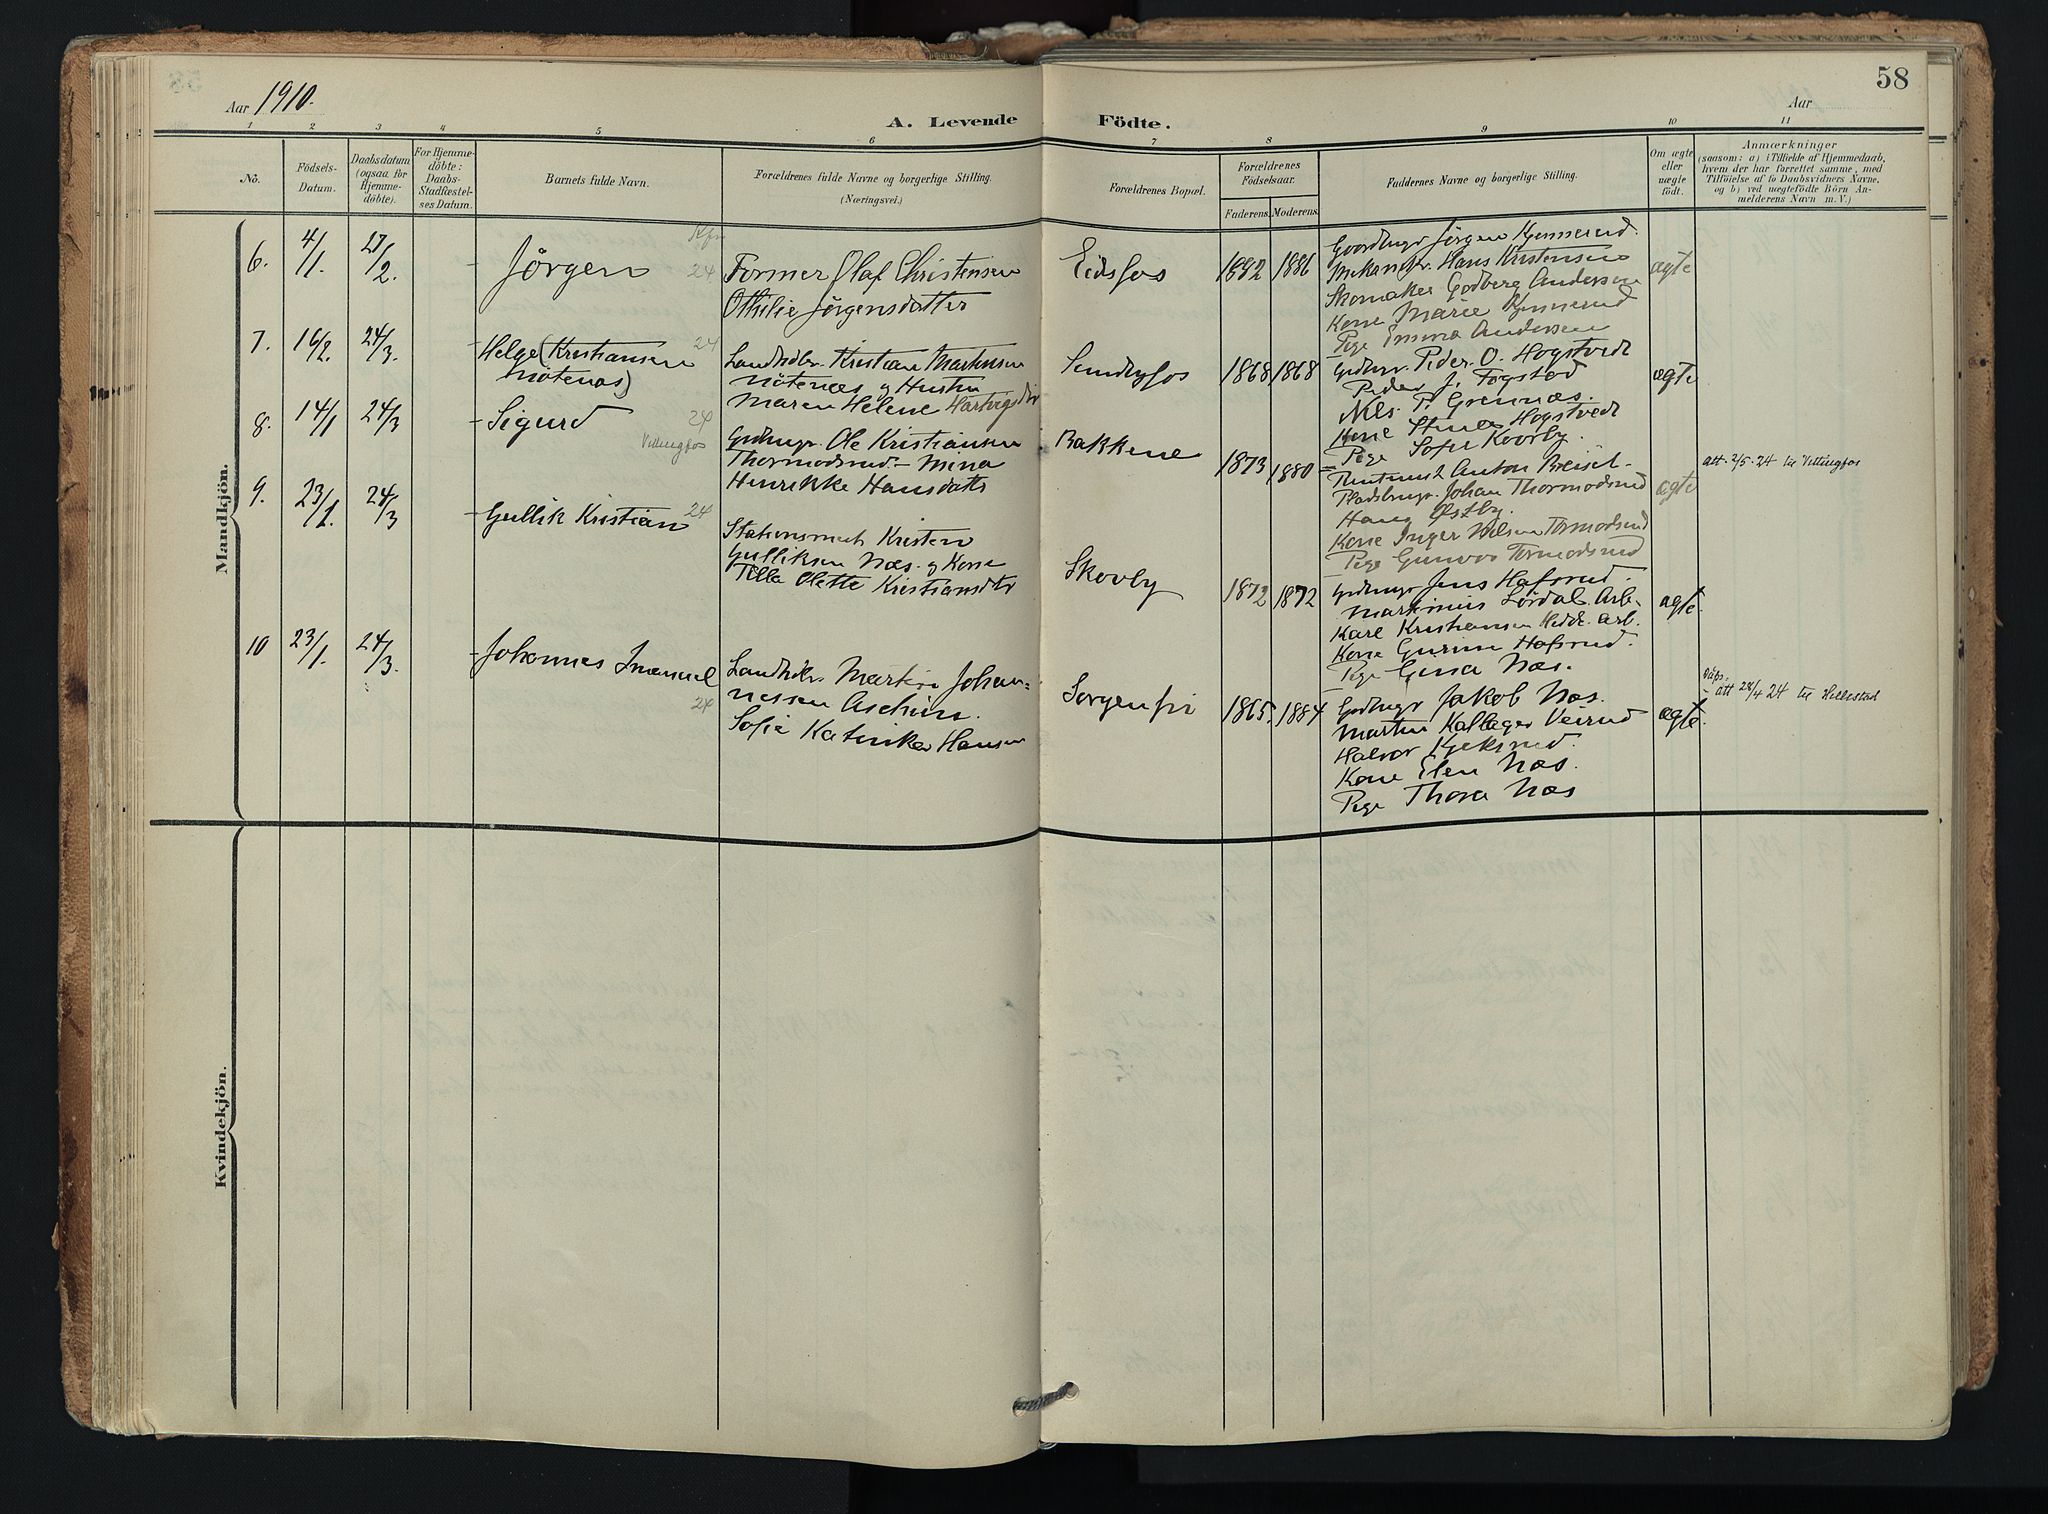 58
Aar 1910.
Aar
A. Levende Födte.
1 2 3 4 5 6 7 8 9 10 11
No.
Födsels-
Datum.
Daabsdatum
(ogsaa for
Hjemme-
döbte).
For Hjemme-
döbte:
Daabs-
Stadfæstel-
ses Datum.
Barnets fulde Navn.
Forældrenes fulde Navne og borgerlige Stilling.
(Næringsvei.)
Forældrenes Bopæl.
Forældrenes
Födselsaar.
Faderens. Moderens.
Faddernes Navne og borgerlige Stilling.
Om ægte
eller
uægte
födt.
Anmærkninger
(saasom: a) i Tilfælde af Hjemmedaab,
hvem der har forrettet samme, med
Tilföielse af to Daabsvidners Navne,
og b) ved uægtefödte Börn An-
melderens Navn m. V.)
Mandkjön.
6. 4/1. 27/2. - Jörgen 24
Former Olaf Christensen
Othilie Jørgensdatter
Eidsfos 1882 1886
Gaardbrgr Jørgen Hjennerud.
Hans Kristensen
Skomaker Godberg Andersen
Kone Marie Hjennerud
Pige Emma Andersen
ægte
7. 16/2. 24/3. - Helge (Kristiansen 24
Nötenæs)
Landhdlr. Kristian Martinsen
Nötenæs og Hustru
Maren Helene Hartvigsdtr
Sundbyfos 1868 1868
Grdbrgr. Peder O. Hogstvedt
Peder J. Fogstad
Nels. P. Grennæs.
Kone Stina Hogstvedt
Pige Sofie Kovrby.
ægte
8. 14/1 24/3 - Sigurd 24
Vittingfos
Grdbrgr. Ole Kristiansen
Thormodsrud - Mina
Henrikke Hansdatter
Bakkene 1873 1880
Anton Breisel-
Pladsbrgr. Johan Thormodsrud
Hans Østby.
Kone Inger Nilsen Tormodsrud
Pige Gunvor Tormodsrud
ægte
att. 2/5-24 til Vittingfos
9. 23/1. 24/3 - Gullik Kristian 24
Stationsmest Kristen
Gulliksen Næs og Kone
Tilla Olette Kristiansdtr
Skovby 1872 1872
Grdbrgr Jens Hafsrud.
Martinius Lørdal Arb.
Karl Kristiansen Hedde. arb.
Kone Gurine Hafsrud.
Pige Gina Næs.
ægte
10 23/1. 24/3. - Johannes Imanuel 24
Landhdlr. Martin Johan-
nessen Aschim.
Sofie Katinka Hansen
Sorgenfri 1865. 1884
Grdbrgr Jakob Næs.
Martin Kallager Veirud
Halvor Kjeksrud.
Kone Elen Næs.
Pige Thora Næs
ægte.
Daps.
- att 28/4 24 til Hillestad
Kvindekjön.